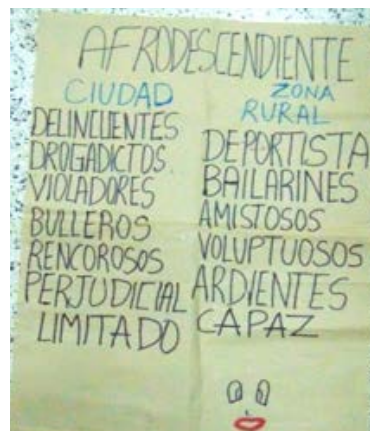 AFRODESCENDIENTE
CIUDAD
DELINCUENTES
DROGADICTOS
VIOLADORES
BULLEROS
RENCOROSOS
PERJUDICIAL
LIMITADO
ZONA
RURAL
DEPORTISTA
BAILARINES
AMISTOSOS
VOLUPTUOSOS
ARDIENTES
CAPAZ